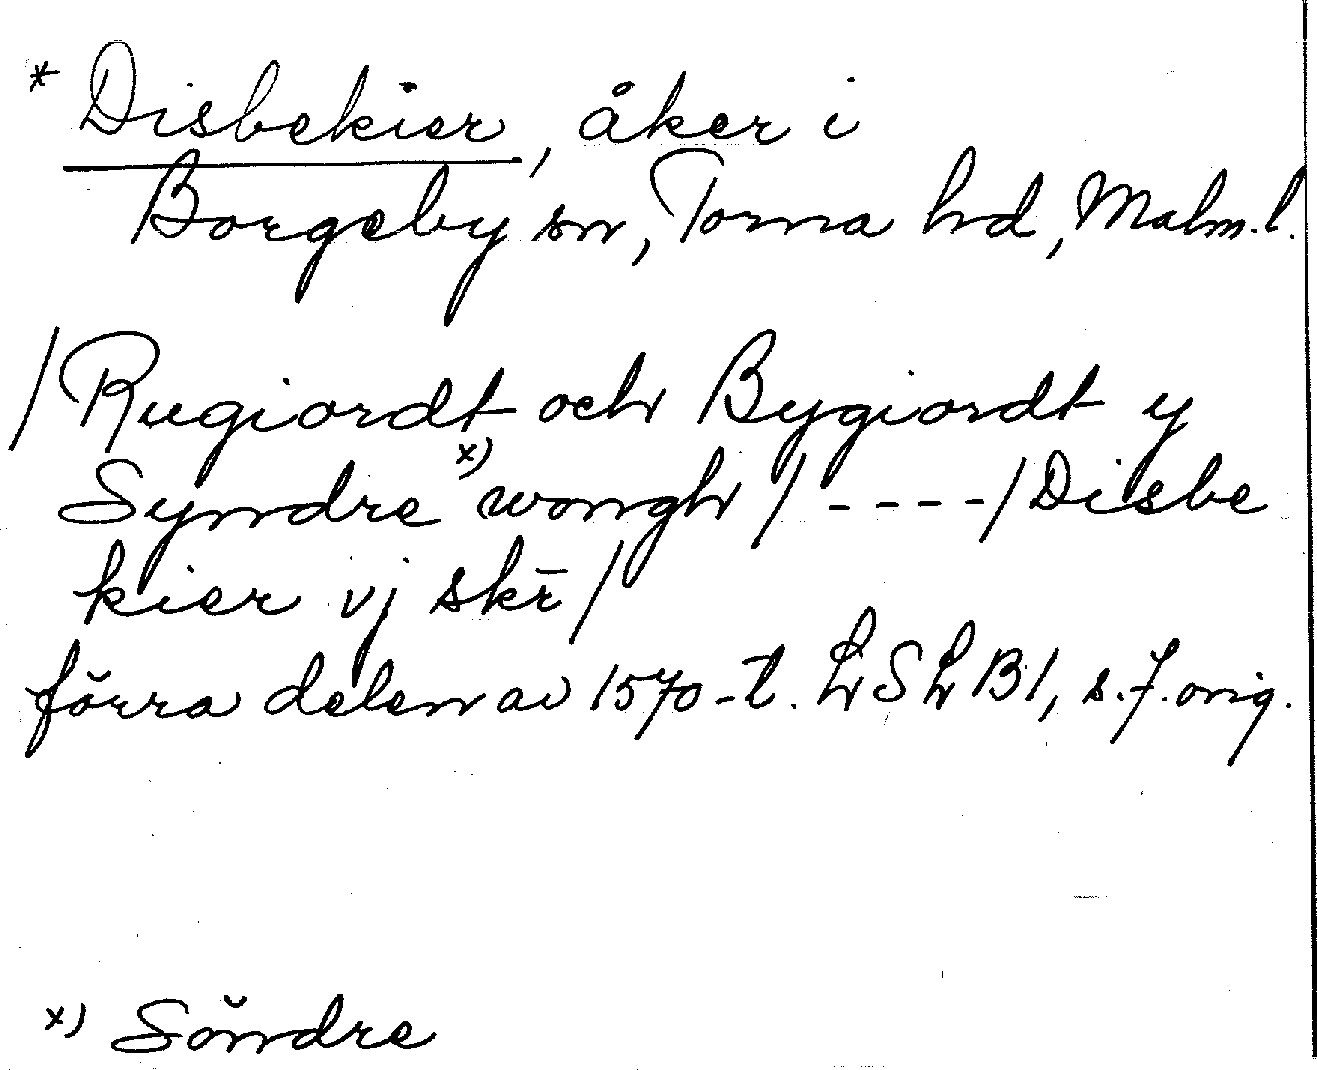 * Disbekier, åker i
Borgeby sn, Torna hd, Malm.l.
/Rugiordt och Bygiordt y
Syndre x) wongh / - - - - / Disbe
kier vj skr̄ /
förra delen av 1570-t. LSLB1, s.7.orig.
x) Söndre